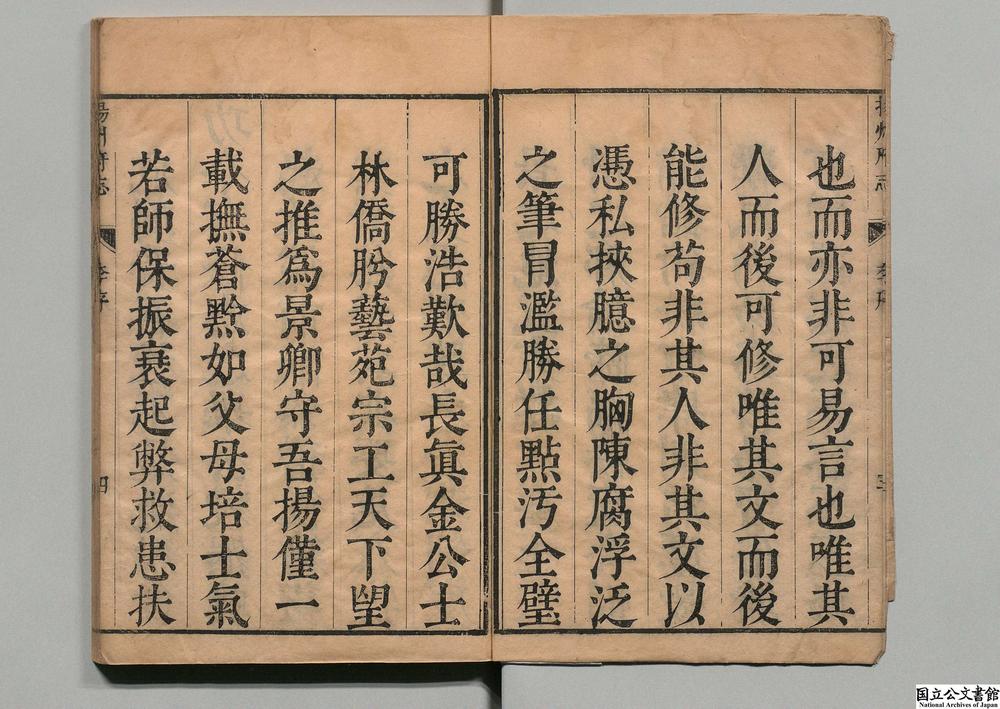 也而亦非可易言也唯其
人而後可修唯其文而後
能修苟非其人非其文以
憑私挾臆之胸陳腐浮泛
之筆冒濫勝任點污全璧
可勝浩歎哉長眞金公士
林僑肹藝苑宗工天下望
之推爲景卿守吾揚僅一
載撫蒼黔如父母培士氣
若師保振衰起弊救患扶
揚州府志
李序
四
国立公文書館
National Archives of Japan